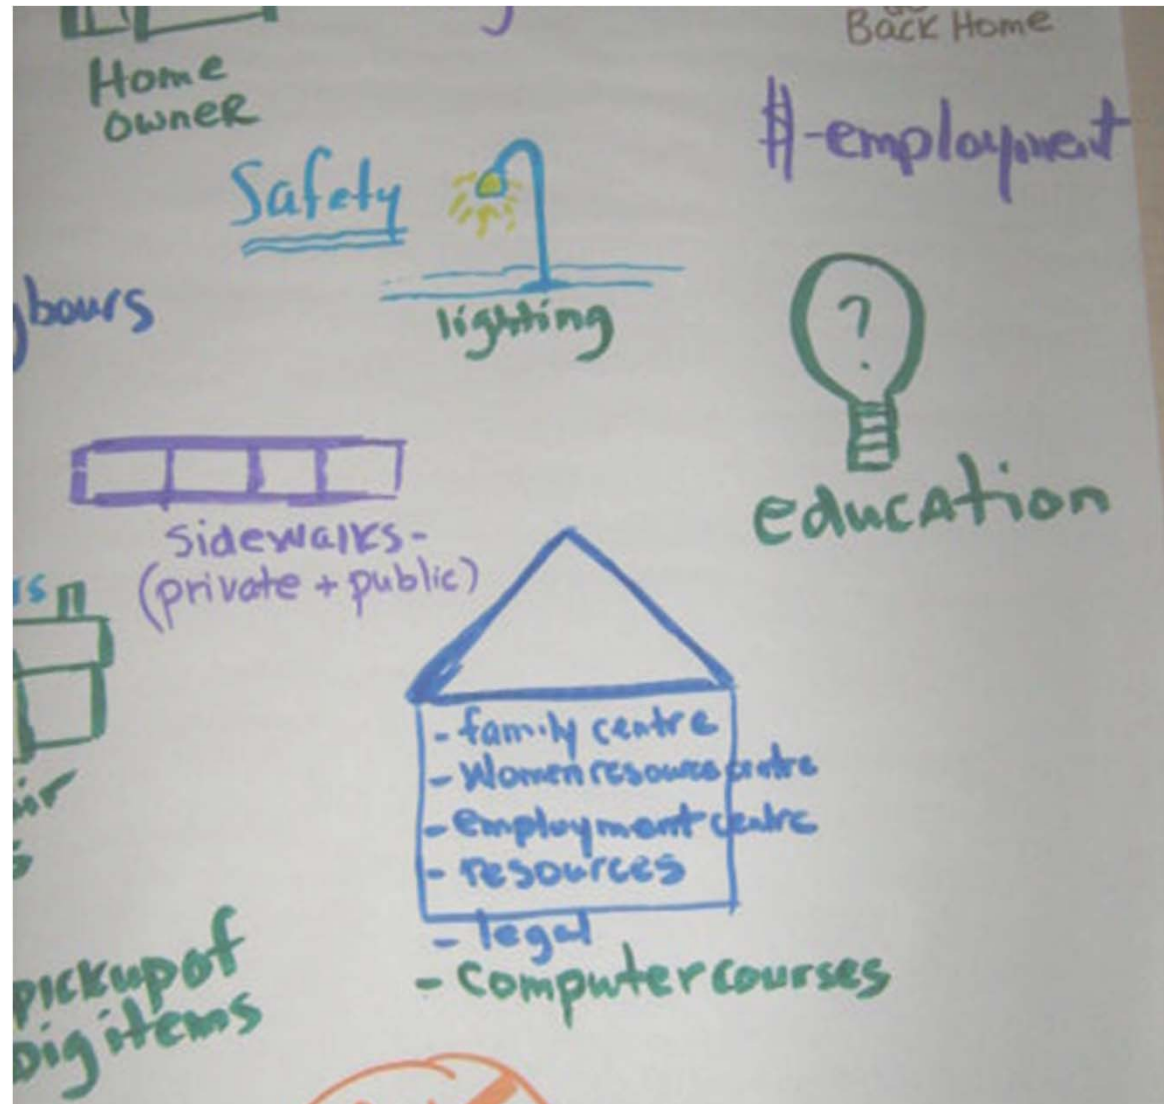 Back Home
Home
owner
$-employment
Safety
bours
lighting
?
education
sidewalks-
(private + public)
- family centre
- Women resource centre
- employment centre
- resources
- legal
- Computer courses
pickup of
big items